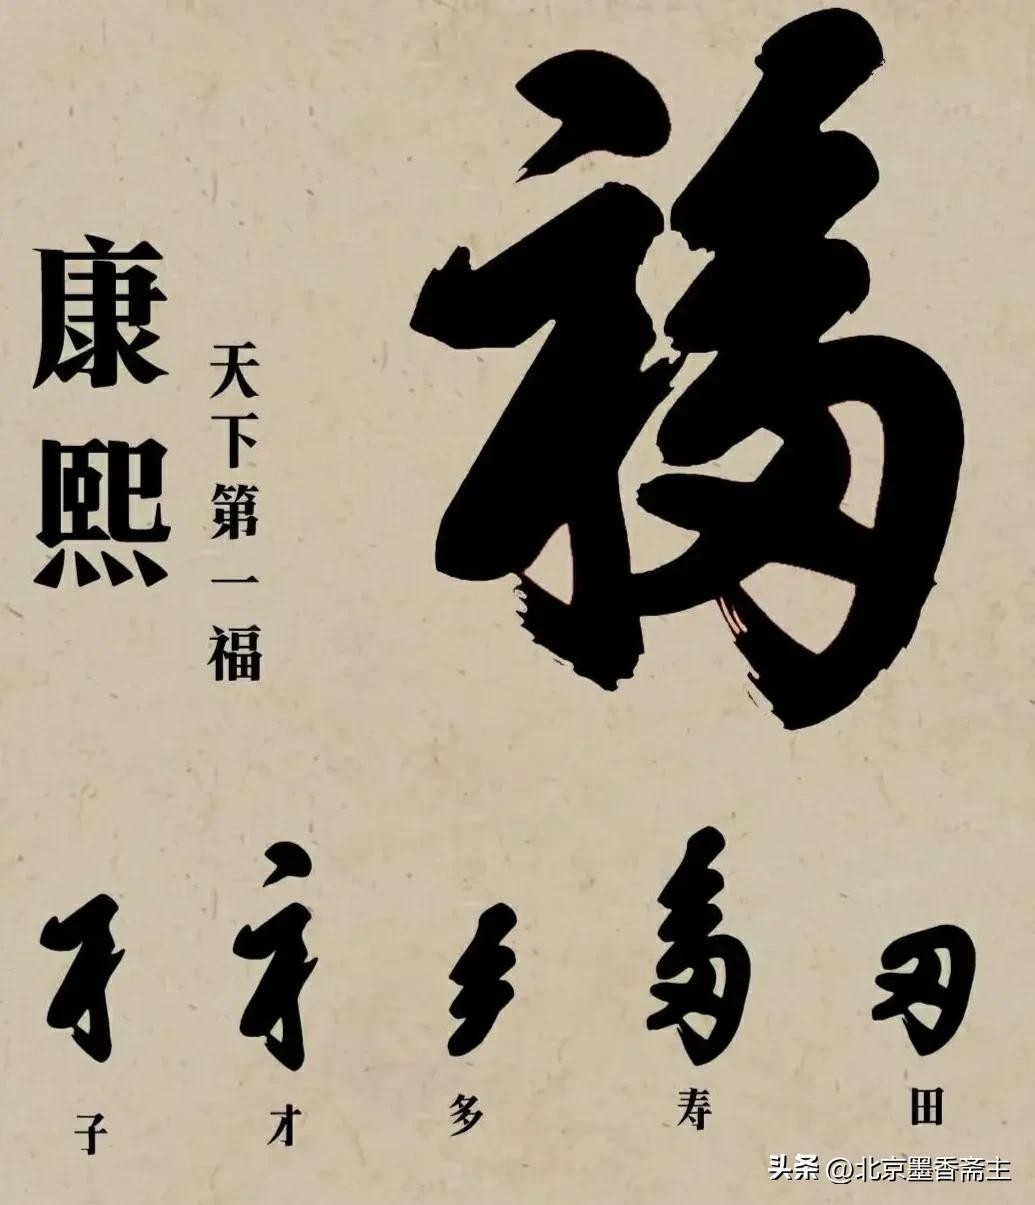 福
康熙
天下第一福
子
才
多
寿
田
头条 @北京墨香斋主